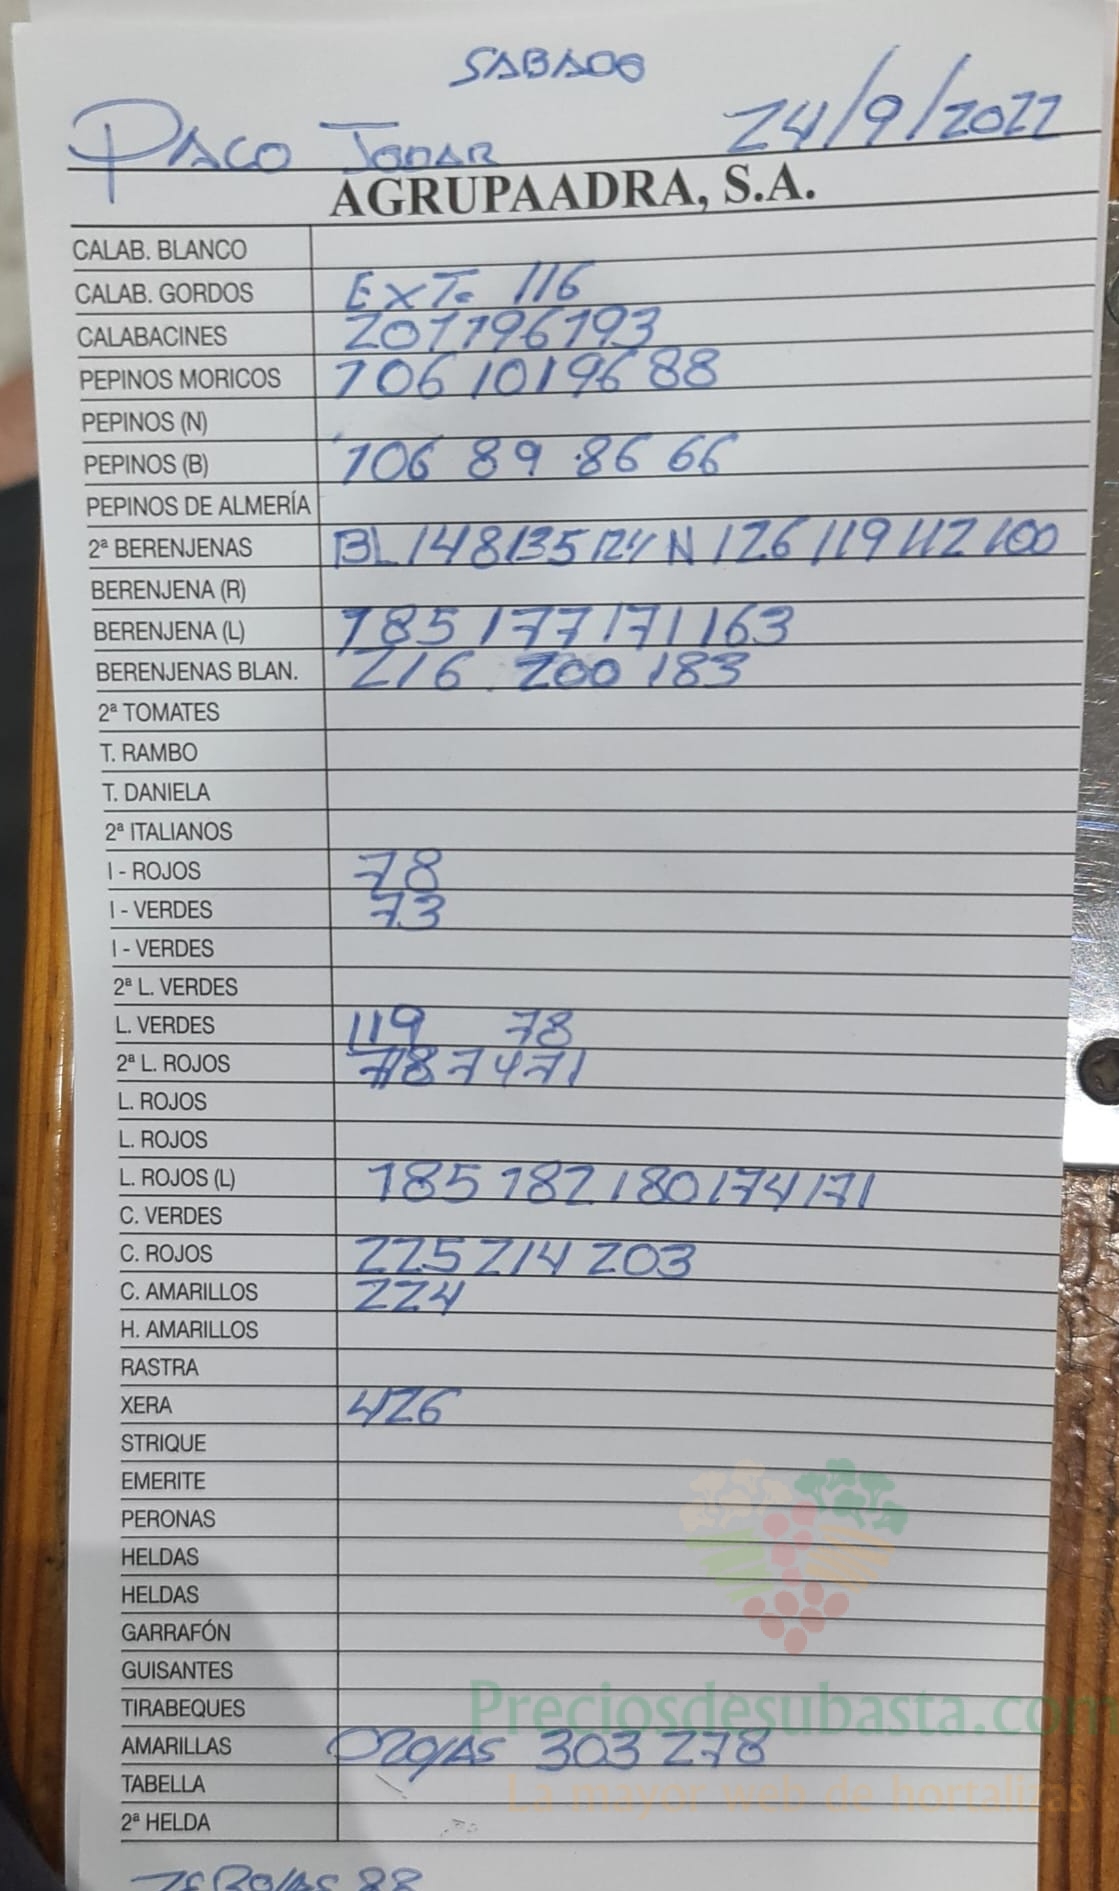 SABADO
PACO JODAR 24/9/2022
AGRUPAADRA, S.A.
CALAB. BLANCO
CALAB. GORDOS EXT. 116
CALABACINES 201 196 193
PEPINOS MORICOS 106 101 96 88
PEPINOS (N)
PEPINOS (B) 106 89 86 66
PEPINOS DE ALMERÍA
2ª BERENJENAS BL 148 135 124 N 126 119 112 100
BERENJENA (R)
BERENJENA (L) 185 177 171 163
BERENJENAS BLAN. 216 200 183
2ª TOMATES
T. RAMBO
T. DANIELA
2ª ITALIANOS
I - ROJOS 78
I - VERDES 73
I - VERDES
2ª L. VERDES
L. VERDES 119 78
2ª L. ROJOS 78 74 71
L. ROJOS
L. ROJOS
L. ROJOS (L) 185 182 180 174 171
C. VERDES
C. ROJOS 225 214 203
C. AMARILLOS 224
H. AMARILLOS
RASTRA
XERA 426
STRIQUE
EMERITE
PERONAS
HELDAS
HELDAS
GARRAFÓN
GUISANTES
TIRABEQUES
Preciosdesubasta.com
AMARILLAS 303 278
TABELLA
La mayor web de hortalizas
2ª HELDA
88